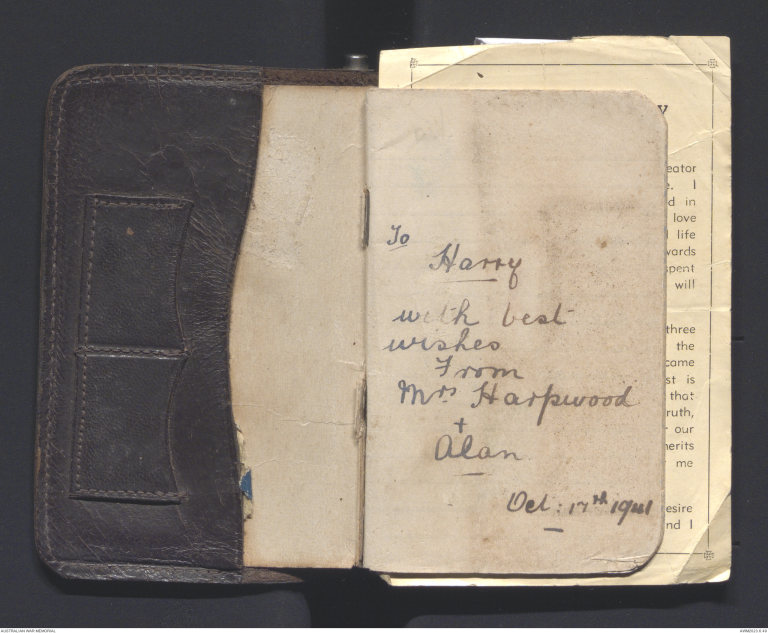 To
Harry
with best
wishes
From
Mrs Harpwood
+
Alan
Oct: 17th 1941
y
eator
e. I
d in
love
life
wards
spent
will
three
the
came
st is
that
ruth,
our
erits
me
esire
nd I
AUSTRALIAN WAR MEMORIAL
AWM2023.8.43